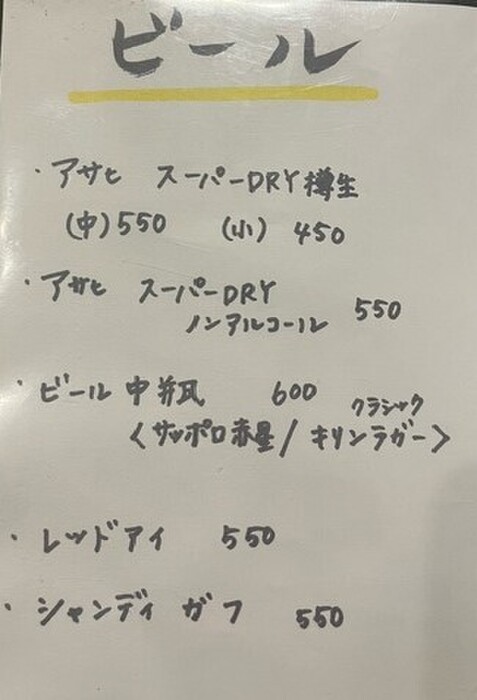 ビール
・アサヒ スーパーDRY 樽生
(中)550 (小) 450
・アサヒ スーパーDRY
ノンアルコール 550
・ビール 中瓶 600
クラシック
〈サッポロ赤星/キリンラガー〉
・レッドアイ 550
・シャンディ ガフ 550